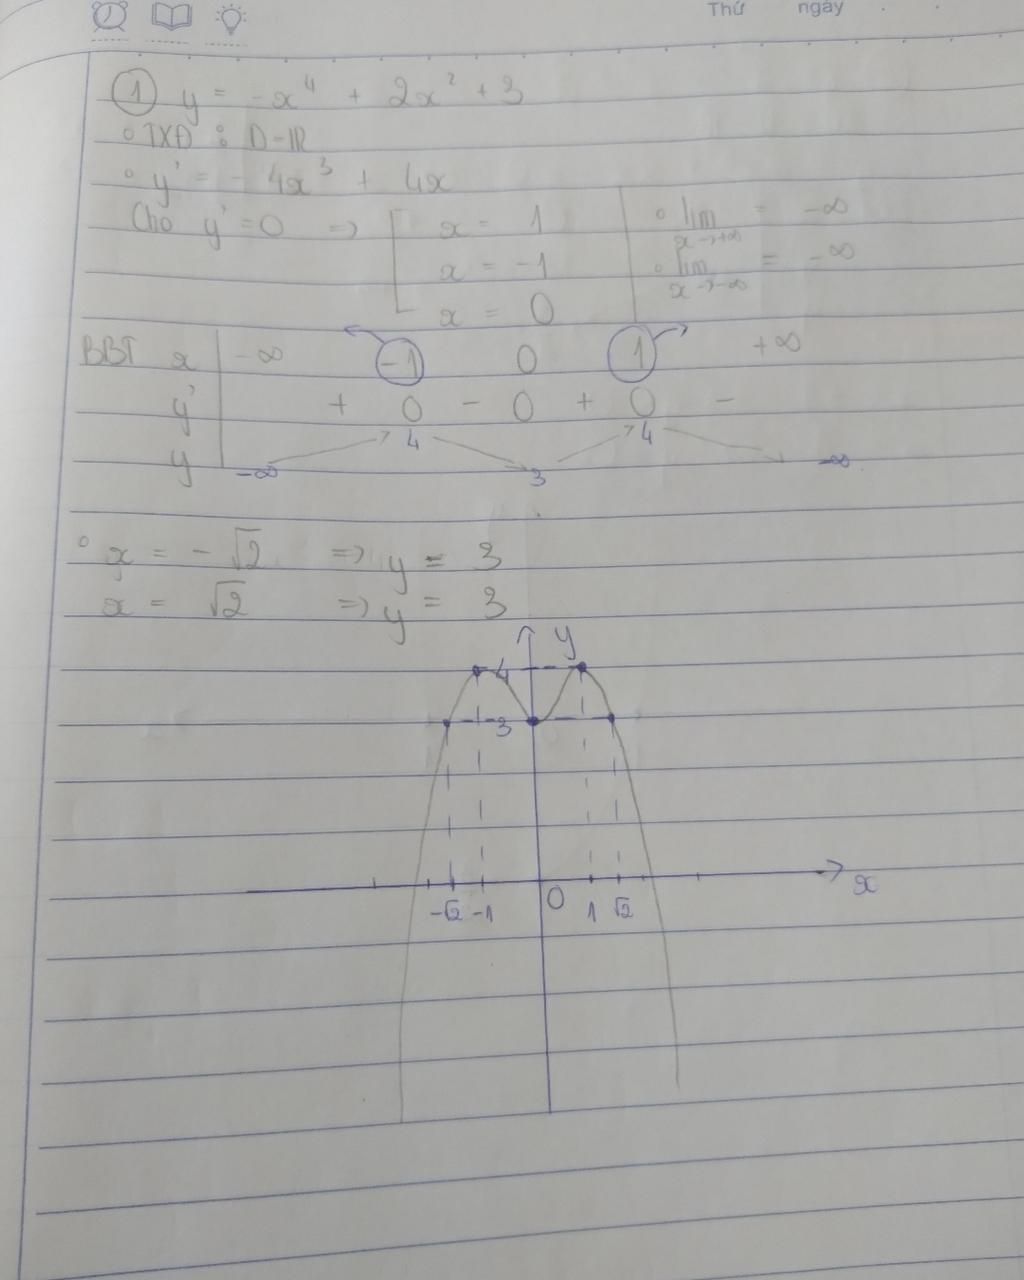 Thứ ngày . .
① y = -x⁴ + 2x² + 3
∘ TXĐ : D=ℝ
∘ y' = - 4x³ + 4x
Cho y' = 0 => [ x = 1
x = -1
x = 0
∘ lim x→+∞ = -∞
∘ lim x→-∞ = -∞
BBT x -∞ -1 0 1 +∞
y' + 0 - 0 + 0 -
y -∞ 4 3 4 -∞
∘ x = -√2 => y = 3
x = √2 => y = 3
y
4
3
-√2 -1 O 1 √2 x